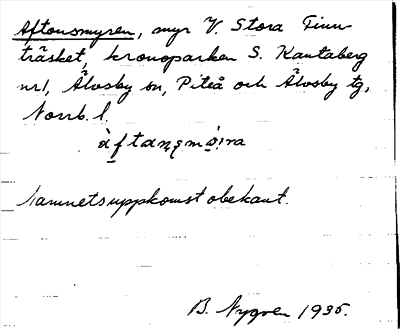 Aftonsmyren, myr V. Stora Finn-
träsket, kronoparken S. Kantaberg
nr 1, Älvsby sn, Piteå och Älvsby tg,
Norrb. l.
àftan̥sm̥ỳra
Namnets uppkomst obekant.
B. Nygren 1935.